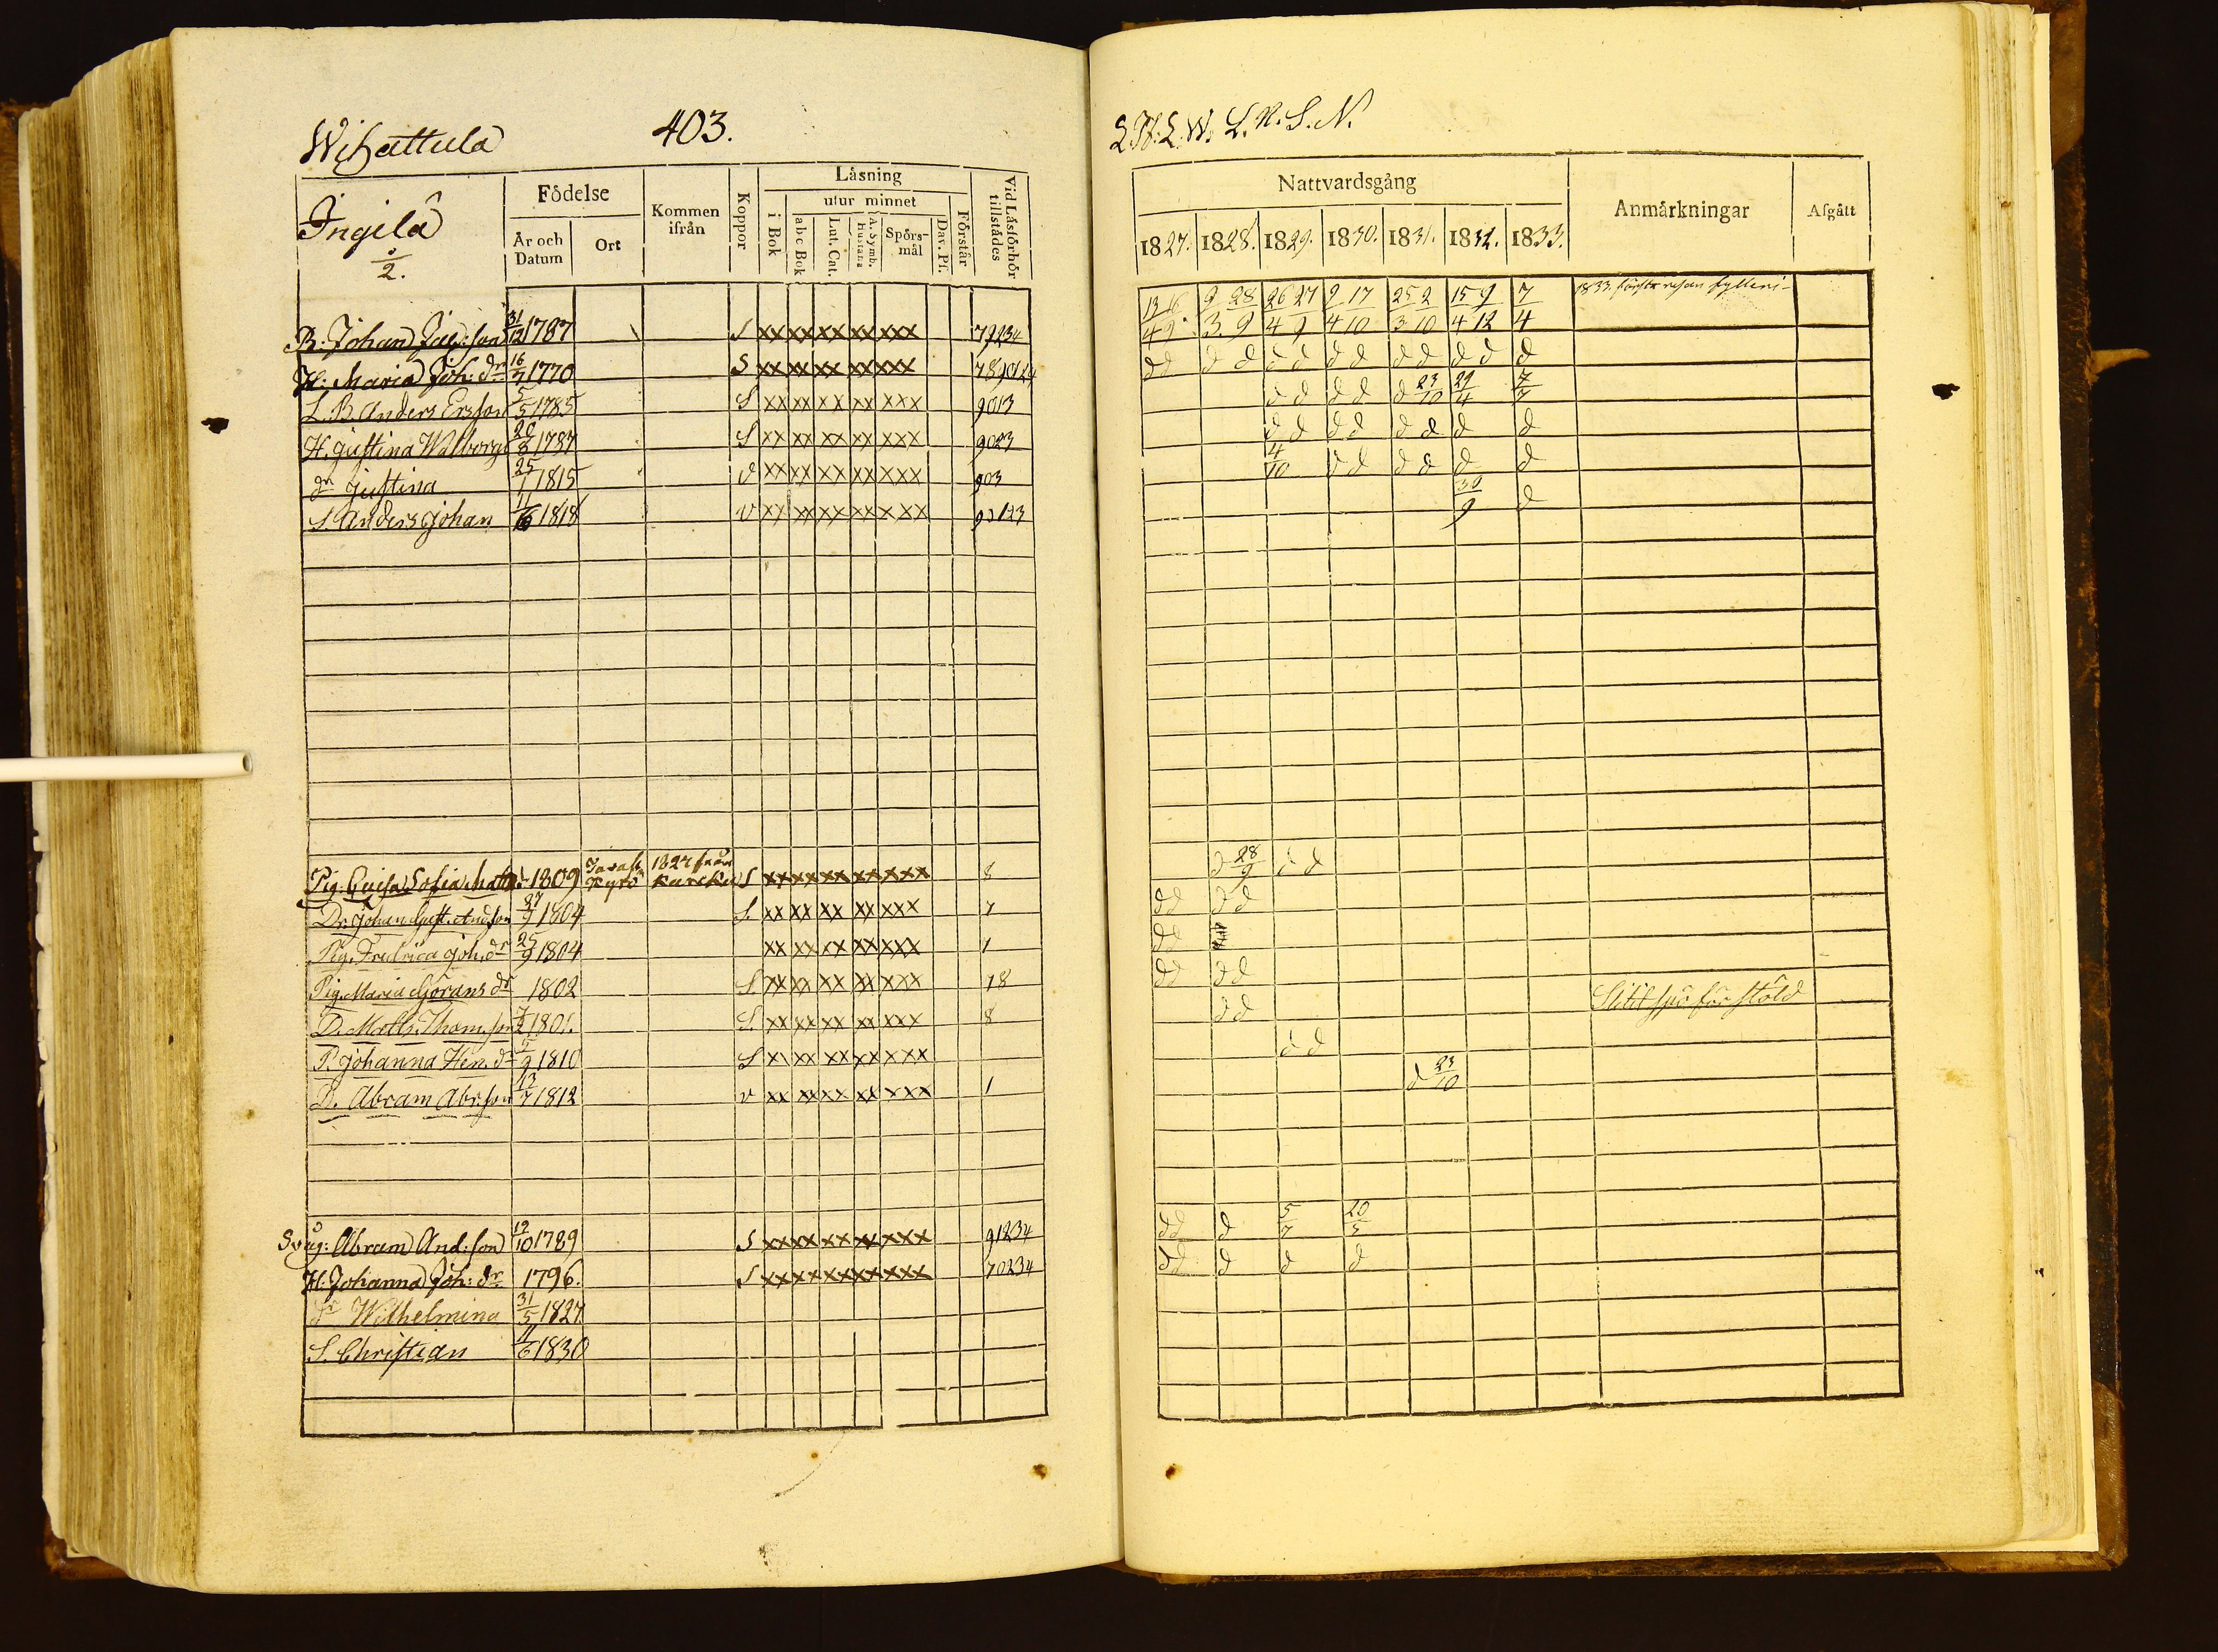 Wihattula 403.
Ingilä
1/2.
Födelse
År och Datum
Ort
Kommen ifrån
Koppor
Läsning
utur minnet
i Bok
abc Bok
Lut. Cat.
A. Symb. Hustafla
Spörs-mål
Dav. Ps.
Förstår
Vid Läsförhör tillstädes
B: Johan Jac:son 31/12 1787 S xx xx xx xx xxx 79234
H: Maria Joh: dr 16/7 1770 S xx xx xx xx xxx 7890124
L. B. Anders Ersson 5/5 1785 S xx xx xx xx xxx 9013
H. Justina Walborg 20/8 1787 S xx xx xx xx xxx 9023
dr Justina 25/1 1815 v xx xx xx xx xxx 903
S. Anders Johan 1818 v xx xx xx xx xxx 90123
Pig: Lovisa Sofia Matts 1809 Tavast Kyro 1827 från Karcku S xx xx xx xx xxx 8
Dr. Johan Gust. And.son 27/7 1804 S. xx xx xx xx xxx 7
Pig. Fredrica Joh. dr 25/9 1804 xx xx xx xx xxx 1
Pig. Maria Görans dr 1802 S. xx xx xx xx xxx 18
D. Matts Thom.son 1801. S. xx xx xx xx xxx 8
P. Johanna Hen. dr 5/9 1810 S x\ xx xx xx xxx
D. Abram Abr.son 13/7 1812 v xx xx xx xx xxx 1
Svåg: Abram And:son 12/10 1789 S xx xx xx xx xxx 91234
H: Johanna Joh: dr 1796. S xx xx xx xx xxx 70234
dr Wilhelmina 31/5 1827.
S. Christian 11/6 1830
L. H. L. W. L. N. S. N.
Nattvardsgång
Anmärkningar
Afgått
1827. 1828. 1829. 1830. 1831. 1832. 1833.
13/4 16/9 9/3 28/9 26/4 27/9 9/4 17/10 25/3 2/10 15/4 9/12 7/4 1833. första resan fylleri
d d d d d d d d d d d d d
d d d d d 23/10 29/4 7/7
d d d d d d d d
4/10 d d d d d d
30/9 d
d 28/9 d d
d d d d
d d
d d d d
d d
d d
d 23/10
d d d 5/7 20/5
d d d d d